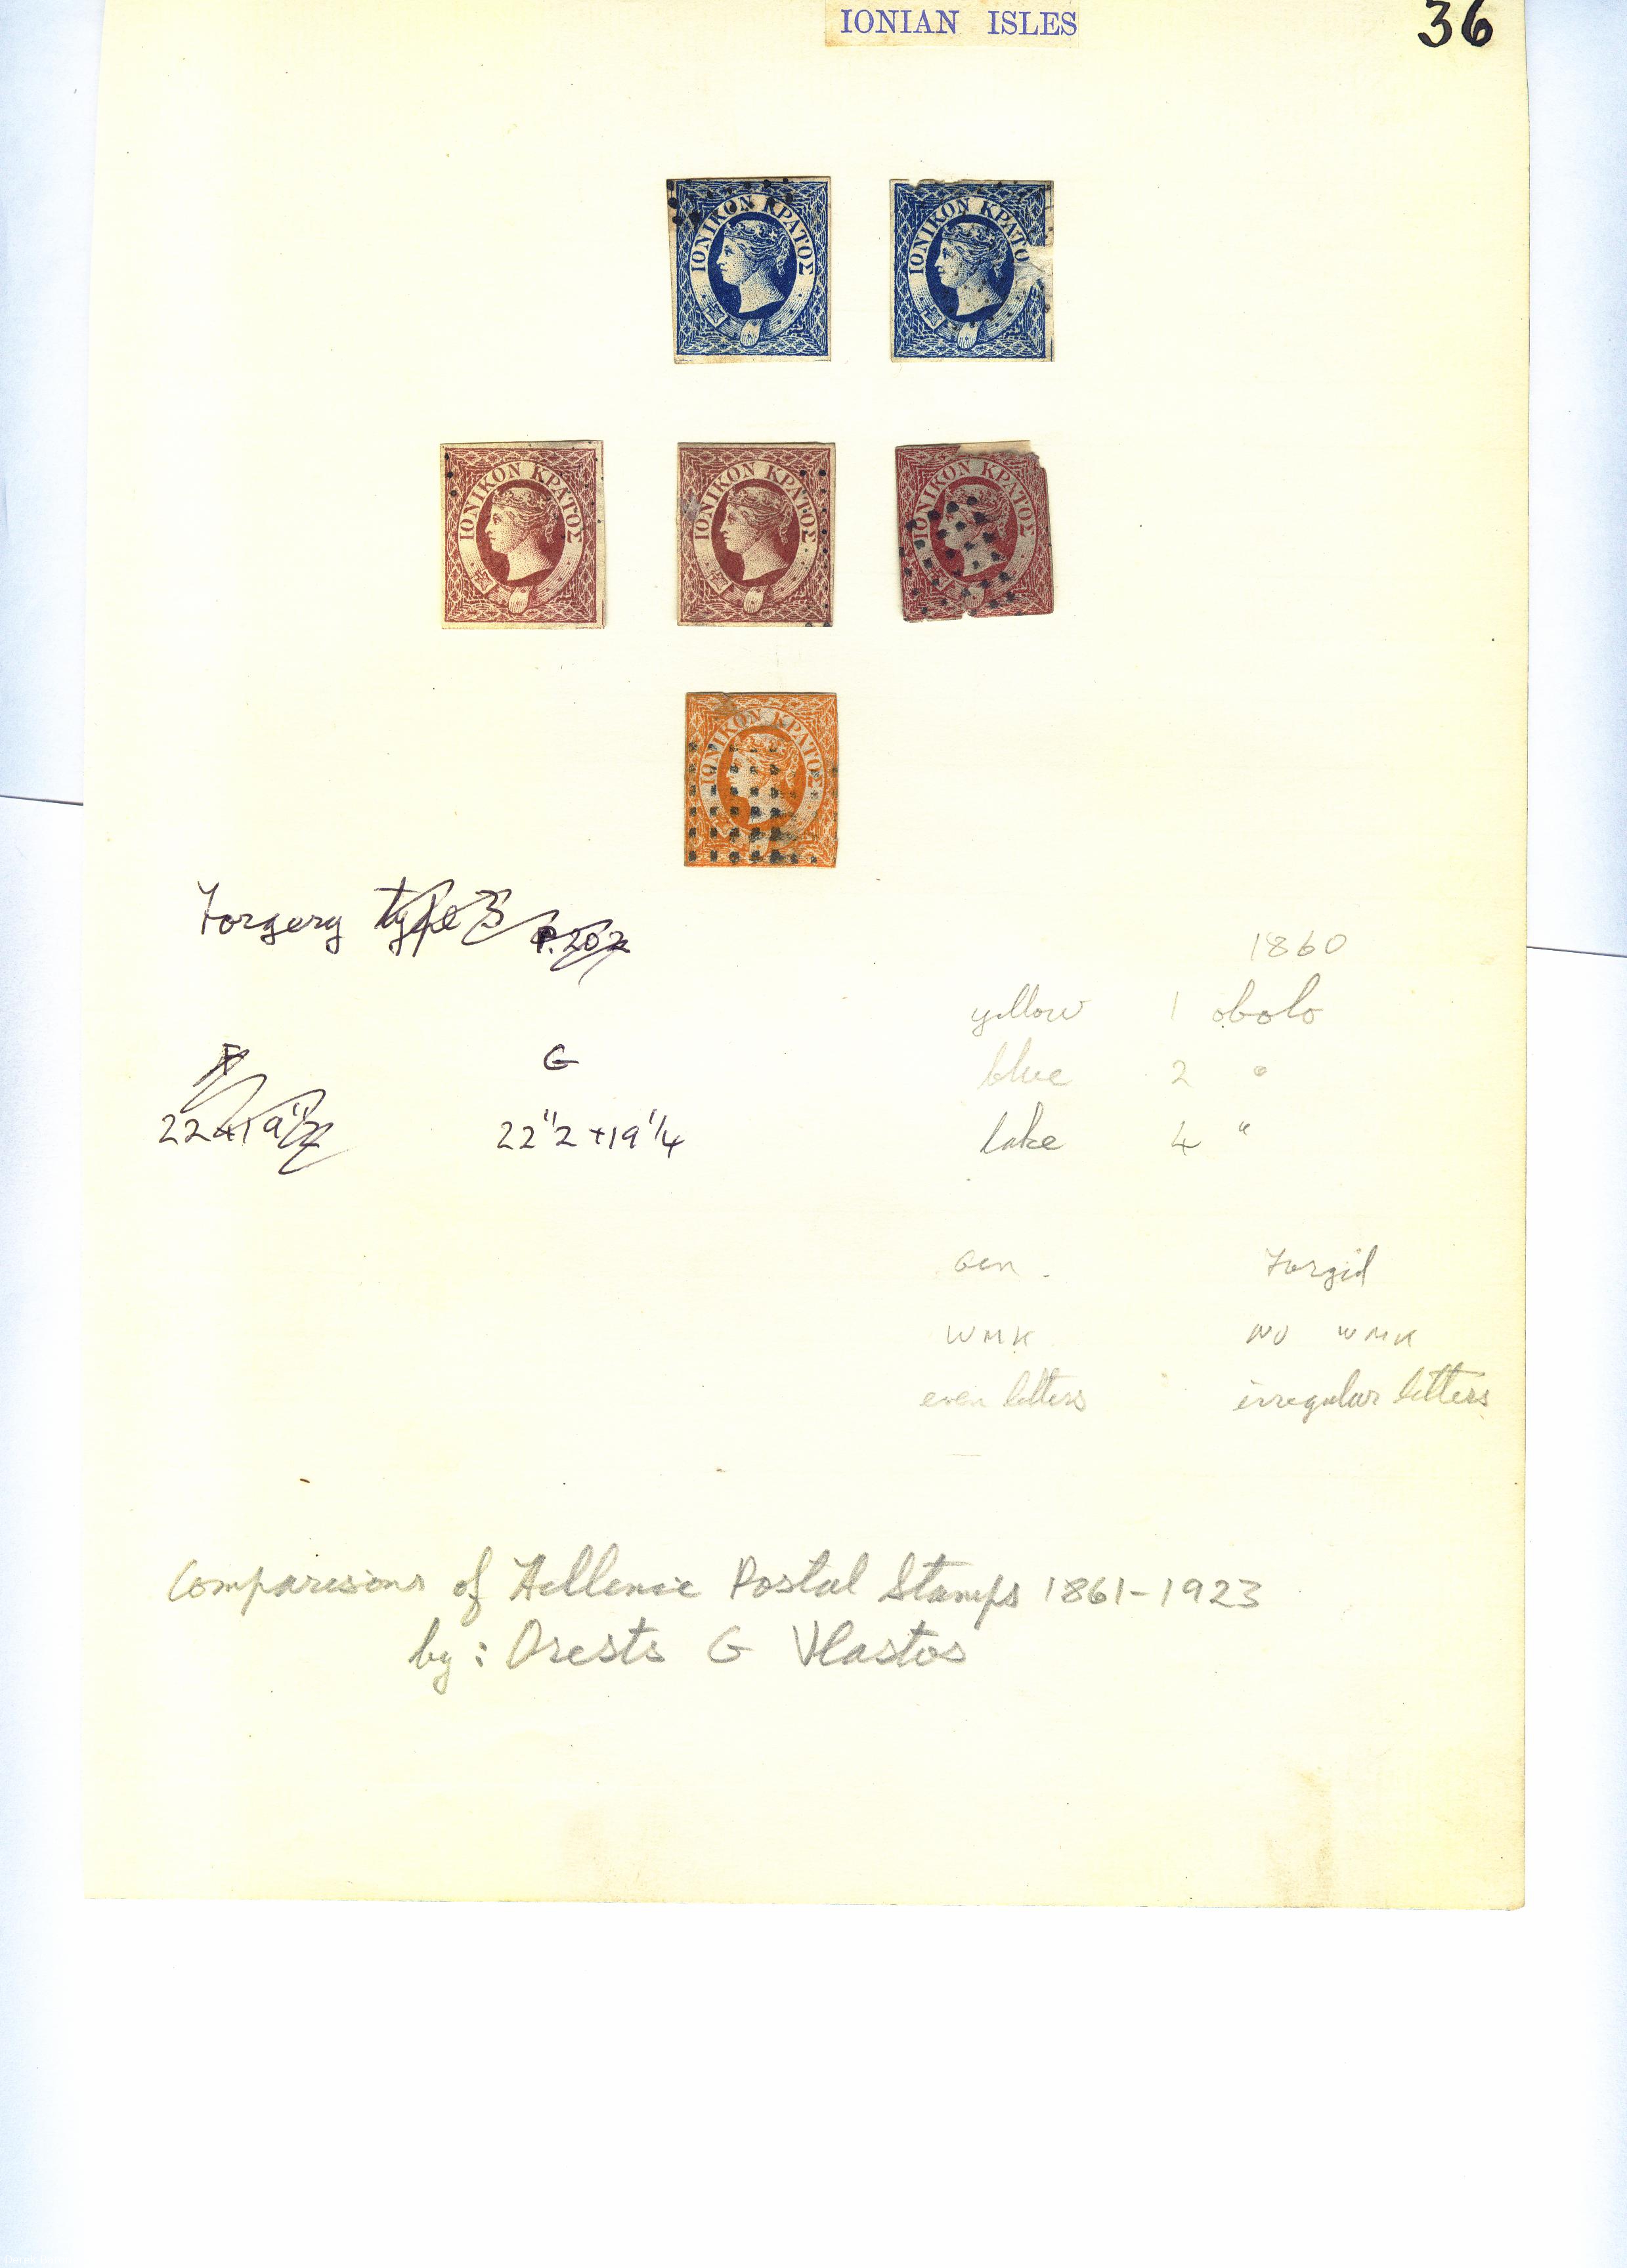 IONIAN ISLES
36
ΙΟΝΙΚΟΝ ΚΡΑΤΟΣ
ΙΟΝΙΚΟΝ ΚΡΑΤΟ
ΙΟΝΙΚΟΝ ΚΡΑΤΟΣ
ΙΟΝΙΚΟΝ ΚΡΑΤΟΣ
ΙΟΝΙΚΟΝ ΚΡΑΤΟΣ
ΙΟΝΙΚΟΝ ΚΡΑΤΟΣ
Forgery type 3 P.202
1860
yellow 1 obolo
blue 2 "
lake 4 "
F G
22+19 1/2 22 1/2+19 1/4
Gen. Forgid
WMK NO WMK
even letters irregular letters
Comparisons of Hellenic Postal Stamps 1861-1923
by: Orests G Vlastos